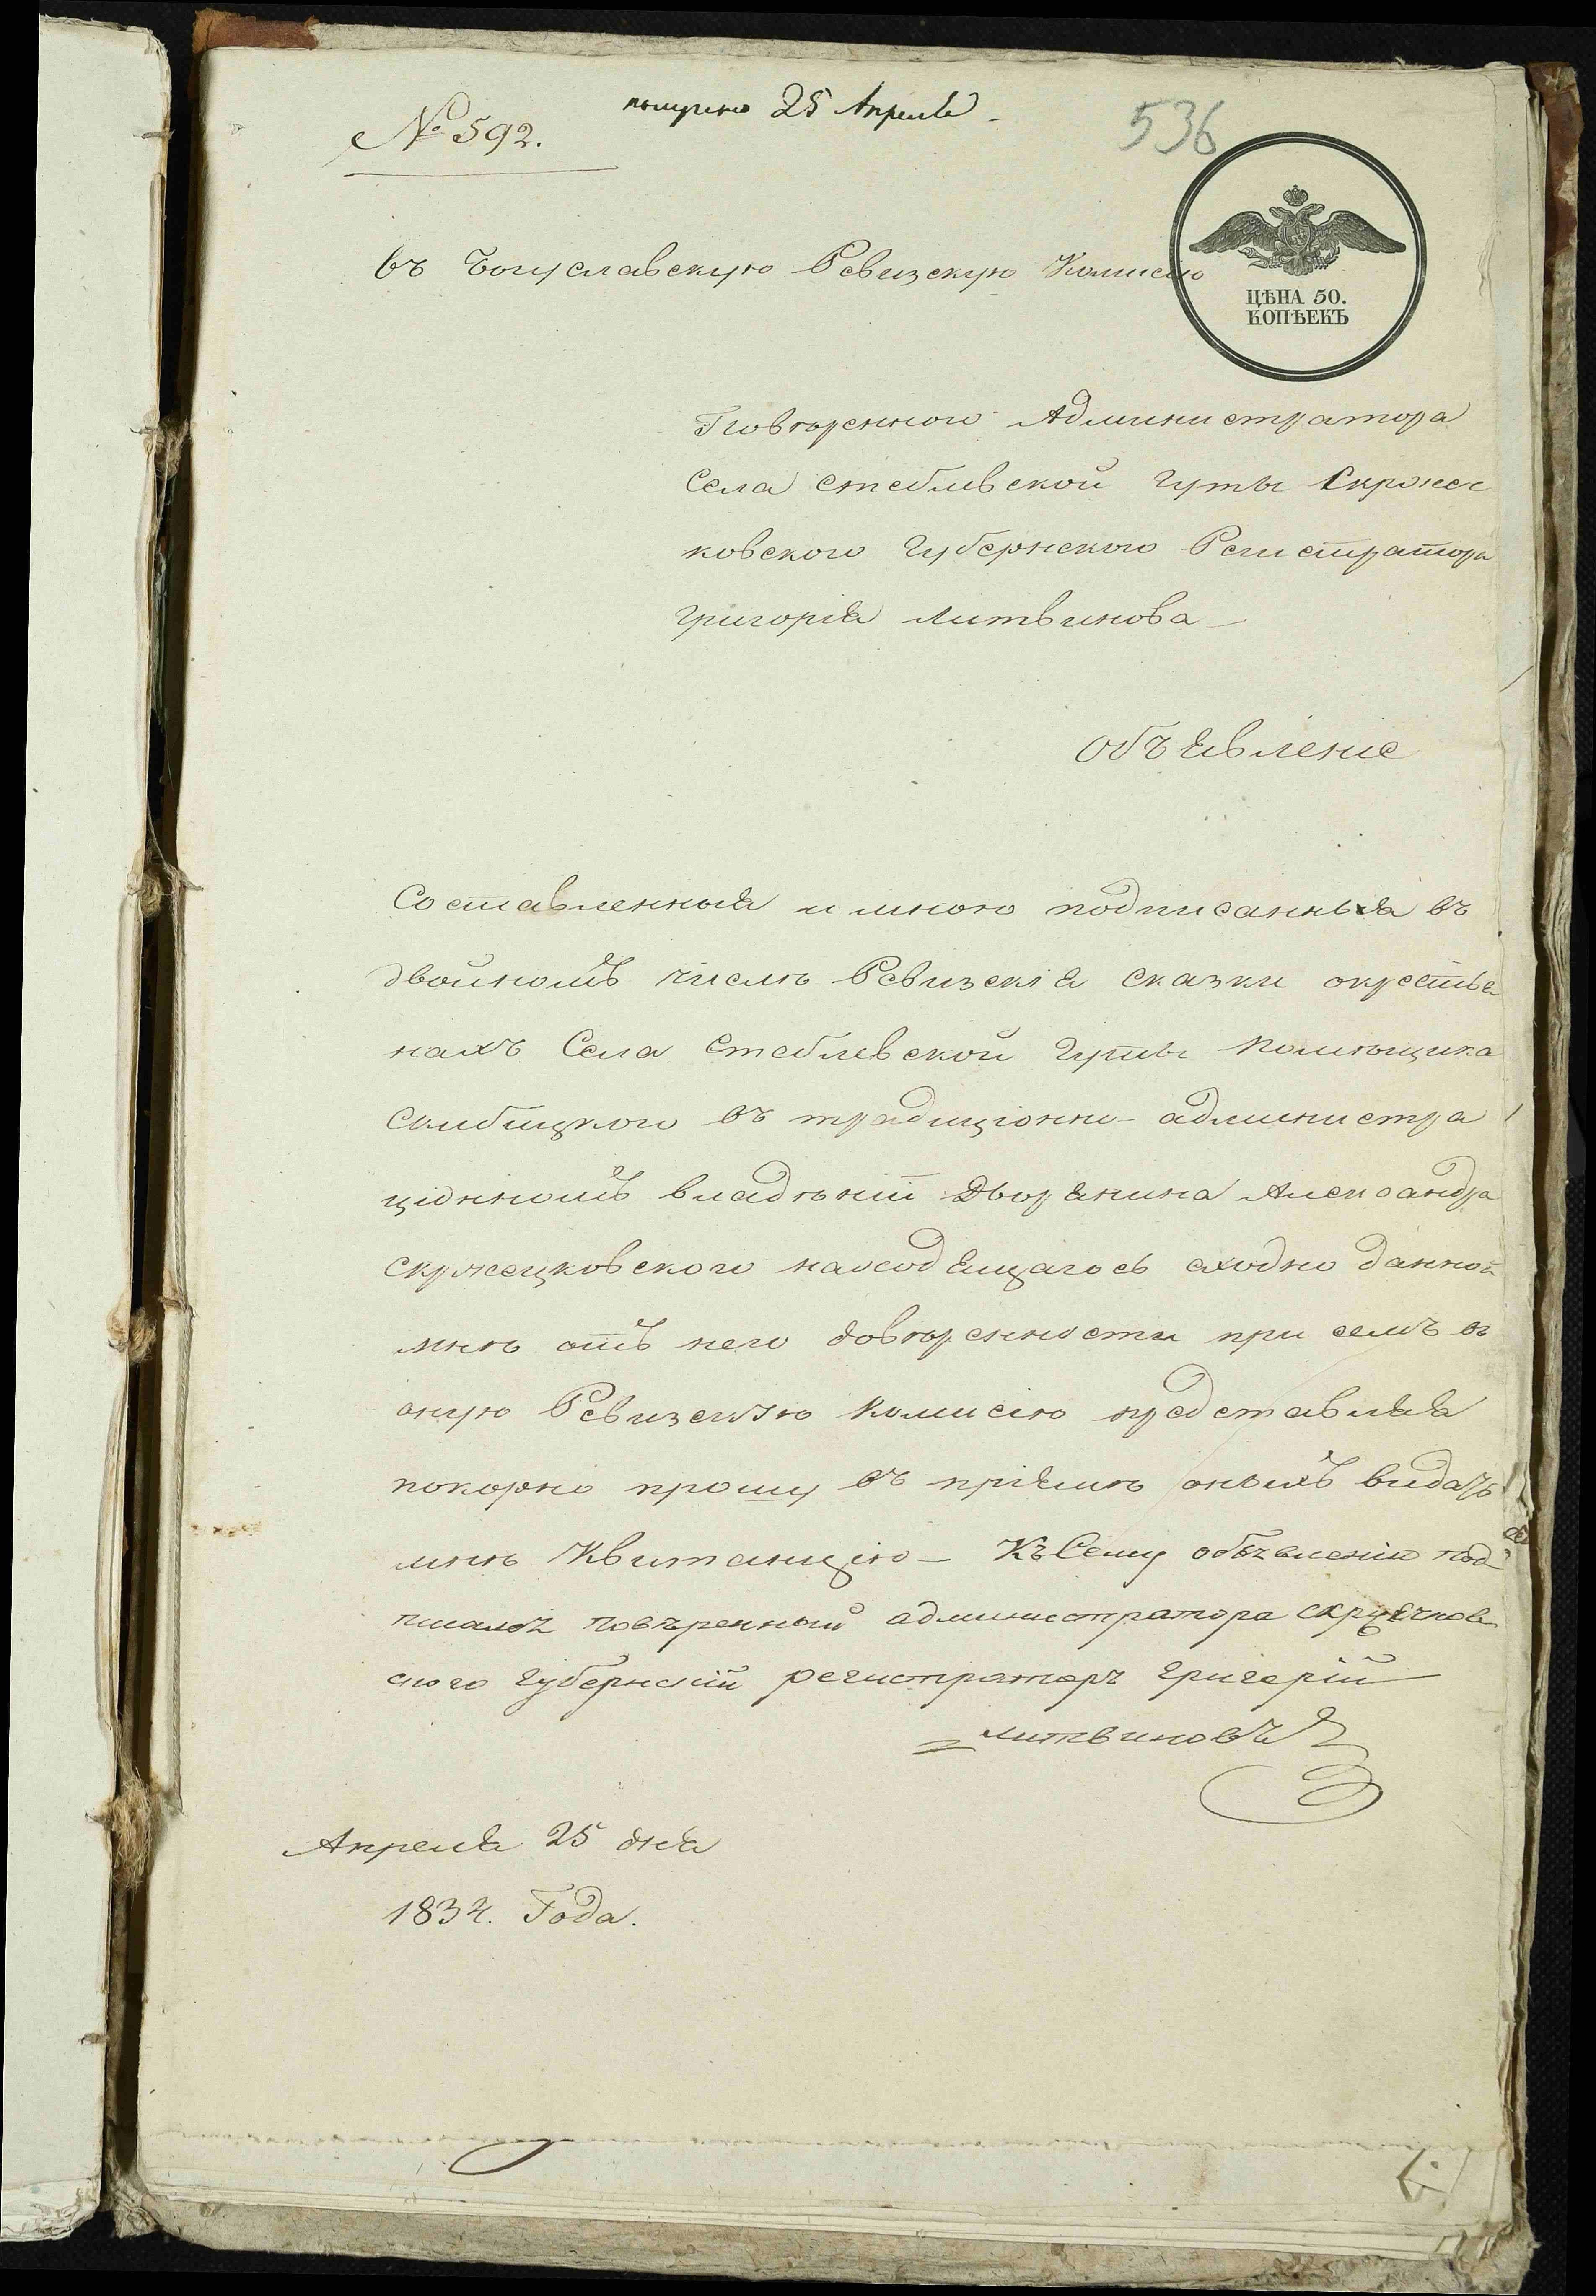 № 592.
получено 25 Апреля
536
въ Богуславскую Ревизскую Комисію
ЦѢНА 50.
КОПѢЕКЪ
Повѣренного Администратора
Села Стеблевской Гуты Скржеч
ковского Губернского Регистратора
Григорія Литвинова
Объявленіе
Составленныя и мною подписанныя въ
двойномъ числѣ Ревизскія сказки окрестья
нахъ Села Стеблевской Гуты помѣщика
въ традиціонно-администра
ціонномъ владѣніи Дворянина Александра
Скржецковского находящагось сходно данной
мнѣ отъ него довѣренности при семъ въ
оную Ревизскую Комисію представляя
покорно прошу въ пріемѣ оныхъ видать
мнѣ Квитанцію – Къ Сему объявленію под
писался повѣренный администратора скржечков
ского губернскій регистраторъ григорій
литвиновъ
Апреля 25 дня
1834. Года.